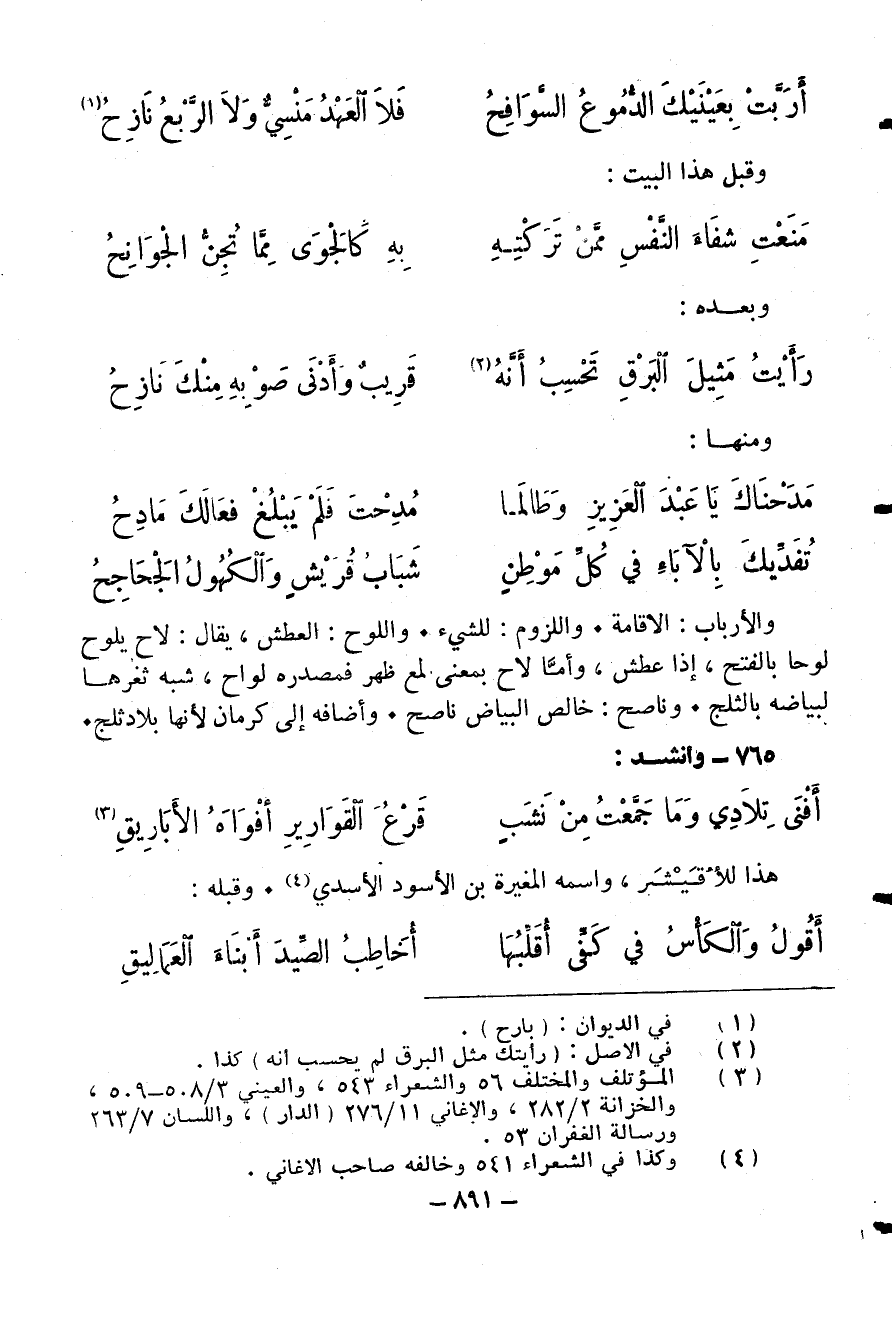 أَرَبَّتْ بِعَيْنَيْكَ الدُّمُوعُ السَّوَافِحُ فَلاَ الْعَهْدُ مَنْسِيٌّ وَلاَ الرَّبْعُ نَازِحُ (١)
وقبل هذا البيت :
مَنَعْتِ شِفَاءَ النَّفْسِ مِمَّنْ تَرَكْتِـهِ بِهِ كَالْجَوَى مِمَّا تُجِنُّ الْجَوَانِحُ
وبعـــده :
رَأَيْتُ مَثِيلَ الْبَرْقِ تَحْسِبُ أَنَّهُ (٢) قَرِيبٌ وَأَدْنَى صَوْبِهِ مِنْكَ نَازِحُ
ومنهــا :
مَدَحْنَاكَ يَا عَبْدَ الْعَزِيزِ وَطَالَمَـا مُدِحْتَ فَلَمْ يَبْلُغْ فِعَالَكَ مَادِحُ
تُفَدِّيكَ بِالْآبَاءِ فِي كُلِّ مَوْطِنٍ شَبَابُ قُرَيْشٍ وَالْكُهُولُ الْجَحَاجِحُ
والأرباب : الاقامة ٠ واللزوم : للشيء ٠ واللوح : العطش ، يقال : لاح يلوح
لوحا بالفتح ، إذا عطش ، وأمّا لاح بمعنى لمع ظهر فمصدره لواح ، شبه ثغرهــا
لبياضه بالثلج ٠ وناصح : خالص البياض ناصح ٠ وأضافه إلى كرمان لأنها بلاد ثلج٠
٧٦٥ ــ وانشــد :
أَفْنَى تِلَادِي وَمَا جَمَّعْتُ مِنْ نَشَبٍ قَرْعُ الْقَوَارِيرِ أَفْوَاهُ الأَبَارِيقِ (٣)
هذا للأُقَيْشَر ، واسمه المغيرة بن الأسود الأسدي(٤) ٠ وقبله :
أَقُولُ وَالْكَأْسُ فِي كَفِّي أُقَلِّبُهَا أُخَاطِبُ الصِّيدَ أَبْنَاءَ الْعَمَالِيقِ
(١) في الديوان : ( بارح ) .
(٢) في الاصل : ( رأيتك مثل البرق لم يحسب انه ) كذا .
(٣) المـؤتلف والمختلف ٥٦ والشعراء ٥٤٣ ، والعيني ٥٠٨/٣ــ٥٠٩ ،
والخزانة ٢٨٢/٢ ، والإغاني ٢٧٦/١١ ( الدار ) ، واللسان ٢٦٣/٧
ورسالة الغفران ٥٣ .
(٤) وكذا في الشعراء ٥٤١ وخالفه صاحب الاغاني .
ــ ٨٩١ ــ